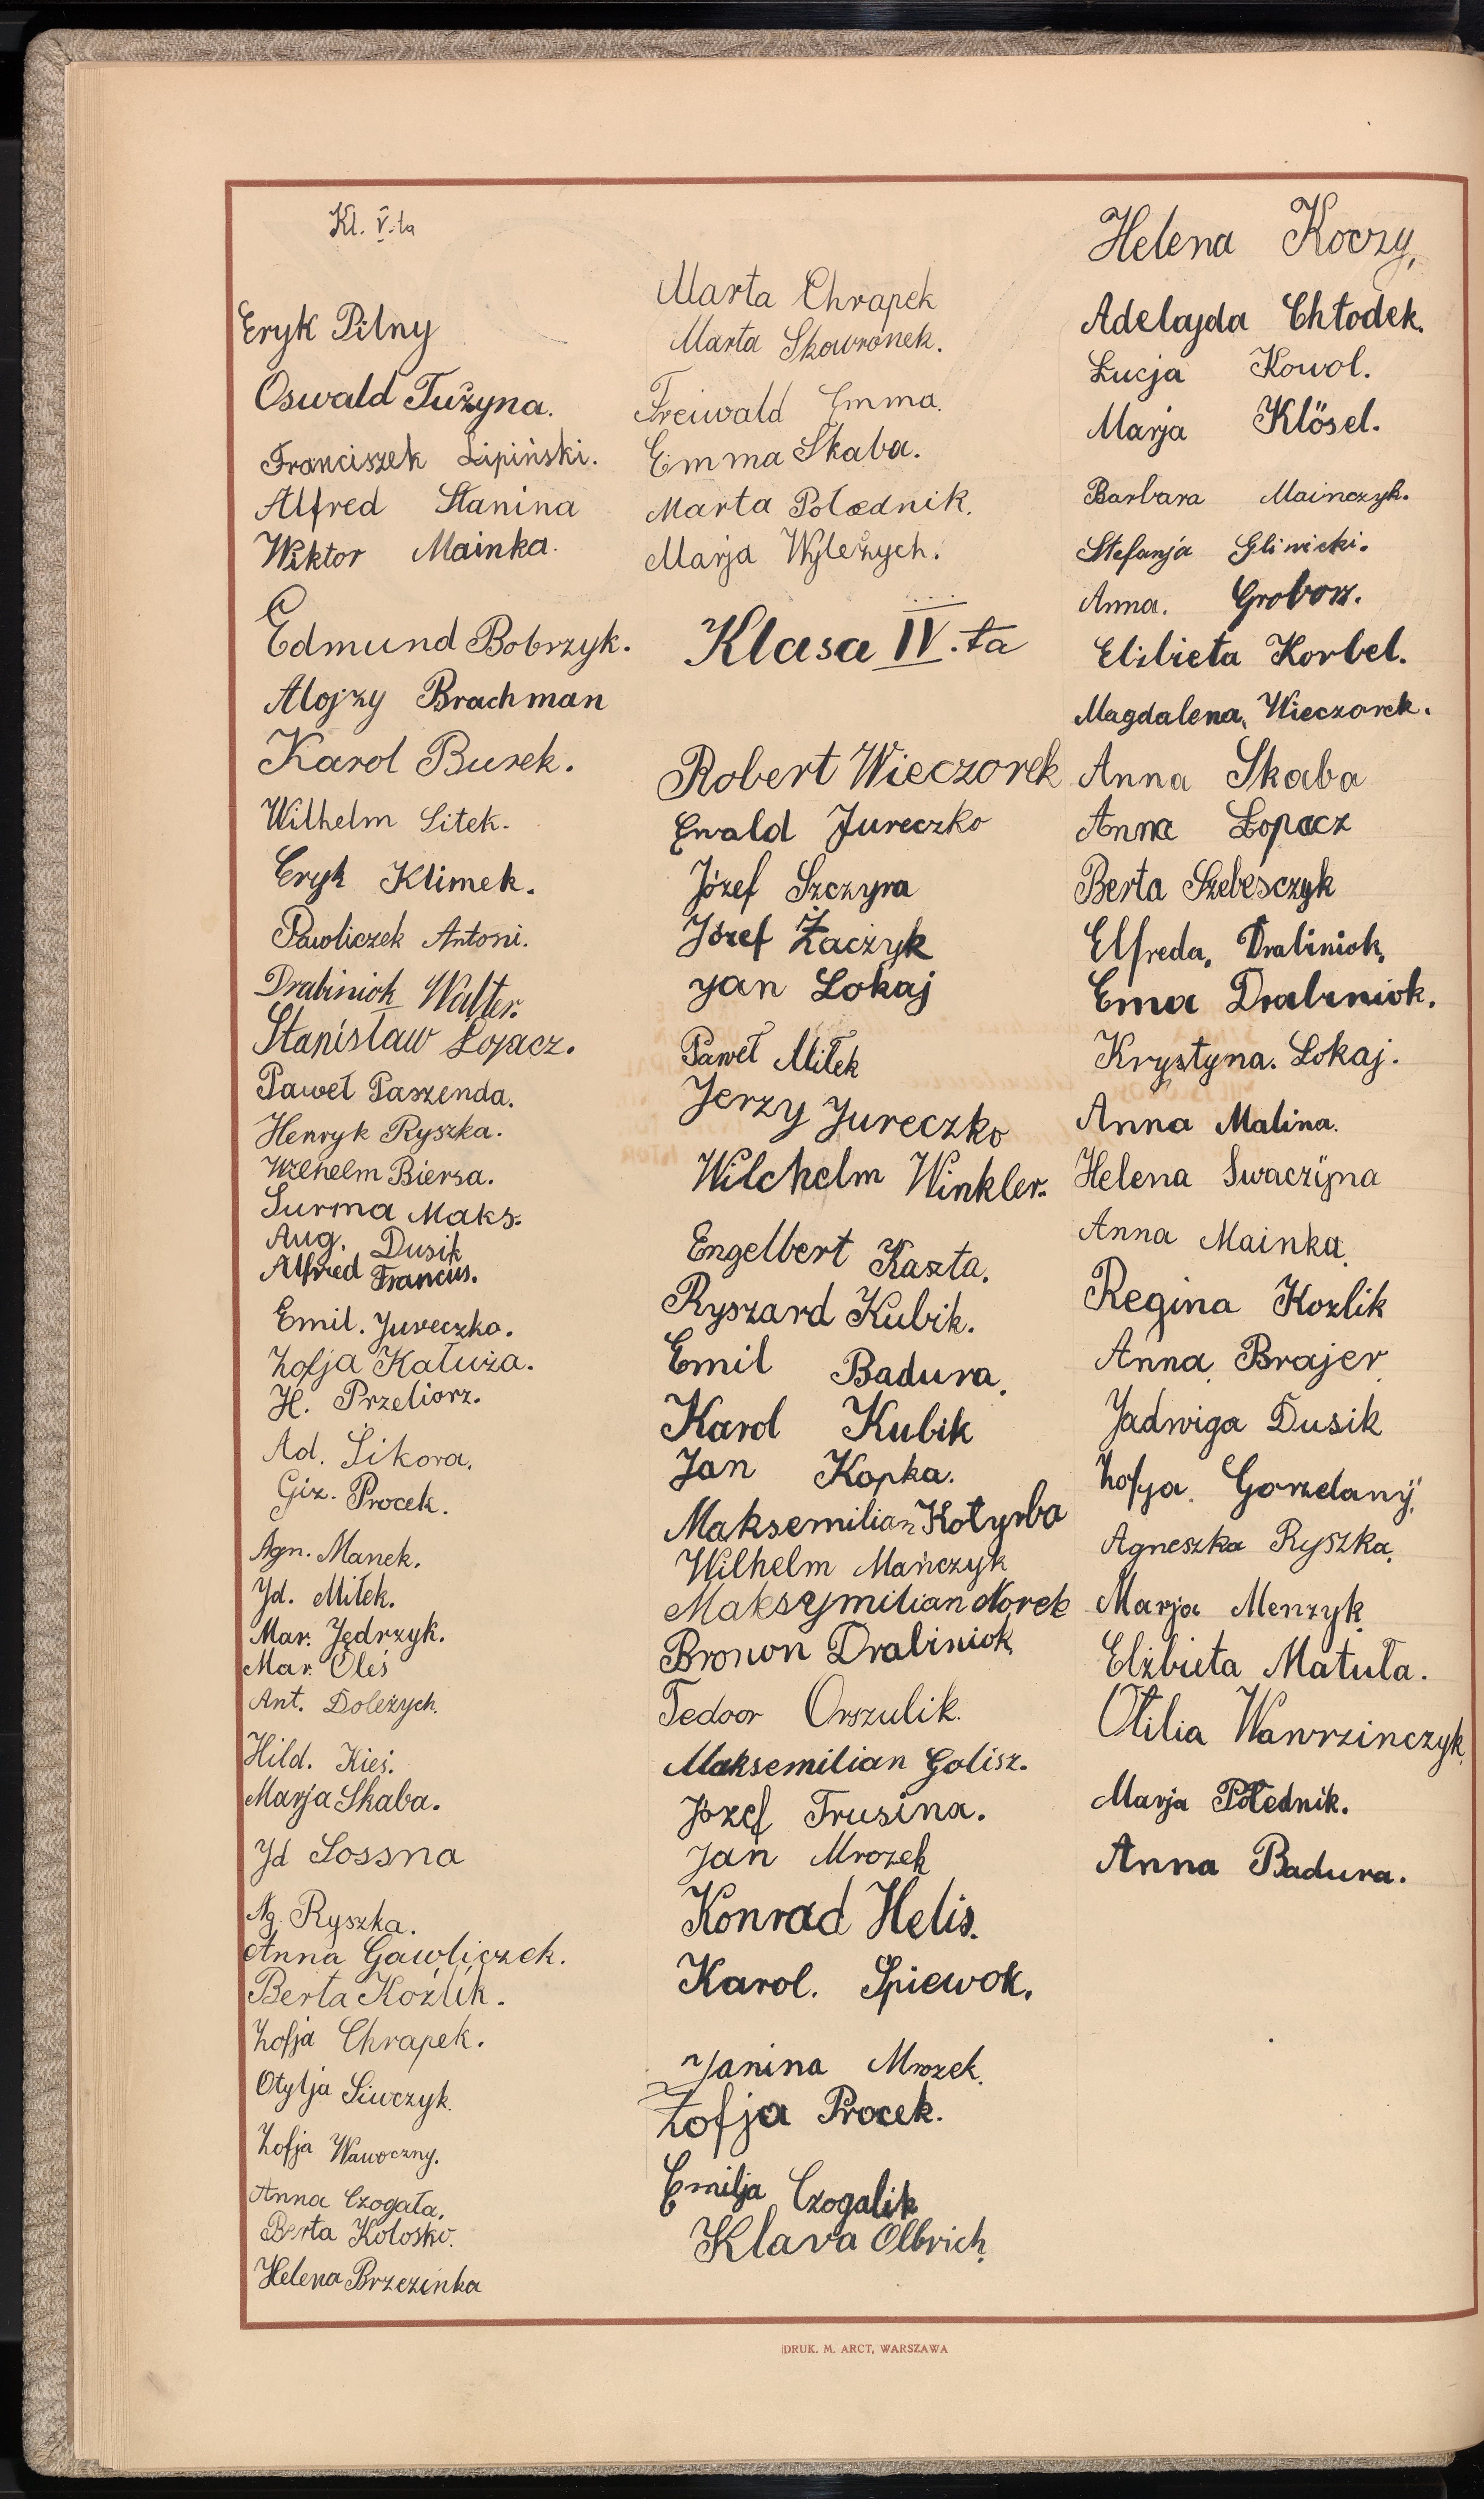 Kl. V.ta
Eryk Pilny
Oswald Tużyna.
Franciszek Lipiński.
Alfred Stanina
Wiktor Mainka.
Edmund Bobrzyk.
Alojzy Brachman
Karol Burek.
Wilhelm Litek.
Eryk Klimek.
Pawliczek Antoni.
Drabiniok Walter.
Stanisław Łopacz.
Paweł Paszenda.
Henryk Ryszka.
Wilhelm Biersa.
Surma Maks.
Aug. Dusik
Alfred Francus.
Emil. Jureczko.
Zofja Kałuża.
H. Przeliorz.
Ad. Sikora.
Giz. Procek.
Agn. Manek.
Jd. Miłek.
Mar. Jędrzyk.
Mar. Oleś
Ant. Doleżych.
Hild. Kieś.
Marja Skaba.
Jd Sossna
Ag. Ryszka.
Anna Gawliczek.
Berta Koźlik.
Zofja Chrapek.
Otylja Siwczyk.
Zofja Wawoczny.
Anna Czogała.
Berta Kolosko.
Helena Brzezinka
Marta Chrapek
Marta Skowronek.
Freiwald Emma.
Emma Skaba.
Marta Połednik.
Marja Wyleżych.
Klasa IV.ta
Robert Wieczorek
Ewald Jureczko
Józef Szczyra
Józef Żaczyk
Jan Lokaj
Paweł Miłek
Jerzy Jureczko
Wilchelm Winkler.
Engelbert Kaszta.
Ryszard Kubik.
Emil Badura.
Karol Kubik
Jan Kopka.
Maksemilian Kotyrba
Wilhelm Mańczyk
Maksymilian Norek
Bronon Drabiniok
Tedoor Orszulik.
Maksemilian Golisz.
Józef Trusina.
Jan Mrozek
Konrad Helis.
Karol. Spiewok.
Janina Mrozek.
Zofja Procek.
Emilja Czogalik
Klara Olbrich.
Helena Koczy.
Adelajda Chłodek.
Łucja Kowol.
Marja Klösel.
Barbara Mainczyk.
Stefanja Gliwicki.
Anna. Groborz.
Elżbieta Korbel.
Magdalena, Wieczorek.
Anna Skaba
Anna Łopacz
Berta Szebesczyk
Elfreda, Drabiniok.
Ema Drabiniok.
Krystyna. Lokaj.
Anna Malina.
Helena Swaczyna
Anna Mainka.
Regina Kozlik
Anna Brajer.
Jadwiga Dusik
Zofja. Gorzelany.
Agneszka Ryszka.
Marja Menzyk.
Elżbieta Matuła.
Otilia Wawrzinczyk.
Marja Połednik.
Anna Badura.
DRUK. M. ARCT, WARSZAWA